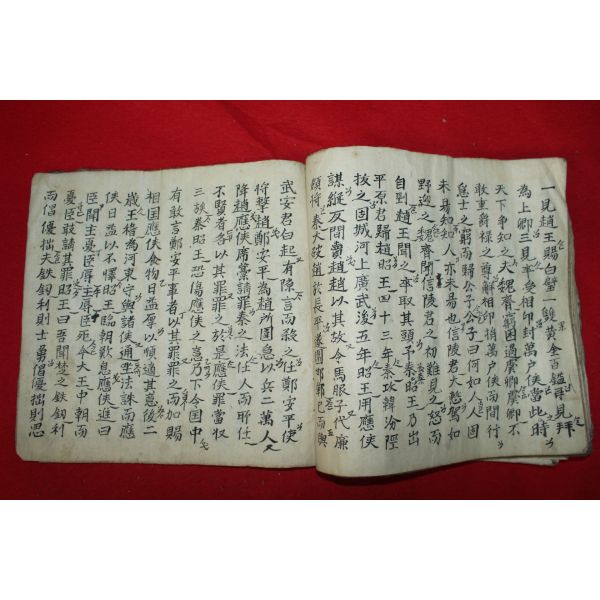 一見趙王賜白璧一雙黃金百鎰再見拜
為上卿三見卒受相印封萬户侯當此之時
天下爭知之夫魏齊窮困過虞卿虞卿不
敢重爵祿之尊解相印捐萬户侯而間行
急士之窮而歸公子公子曰何如人人固
未易知知人亦未易也信陵君大慙駕如
野迎之魏齊聞信陵君之初難見之怒而
自剄趙王聞之卒取其頭予秦昭王乃出
平原君歸趙昭王四十三年秦攻韓汾陘
拔之因城河上廣武後五年昭王用應侯
謀縱反間賣趙趙以其故令馬服子代廉
頗將秦大破趙於長平遂圍邯鄲已而與
武安君白起有隙言而殺之任鄭安平使
將擊趙鄭安平為趙所圍急以兵二萬人
降趙應侯席藁請罪秦之法任人而所任
不賢者各以其罪罪之於是應侯罪當收
三族秦昭王恐傷應侯之意乃下令国中
有敢言鄭安平事者以其罪罪之而加賜
相国應侯食物日益厚以順適其意後二
歲王稽為河東守與諸侯通坐法誅而應
侯日益以不懌昭王臨朝歎息應侯進曰
臣聞主憂臣辱主辱臣死今大王中朝而
憂臣敢請其罪昭王曰吾聞楚之鉄釼利
而倡優拙夫鉄釼利則士勇倡優拙則思